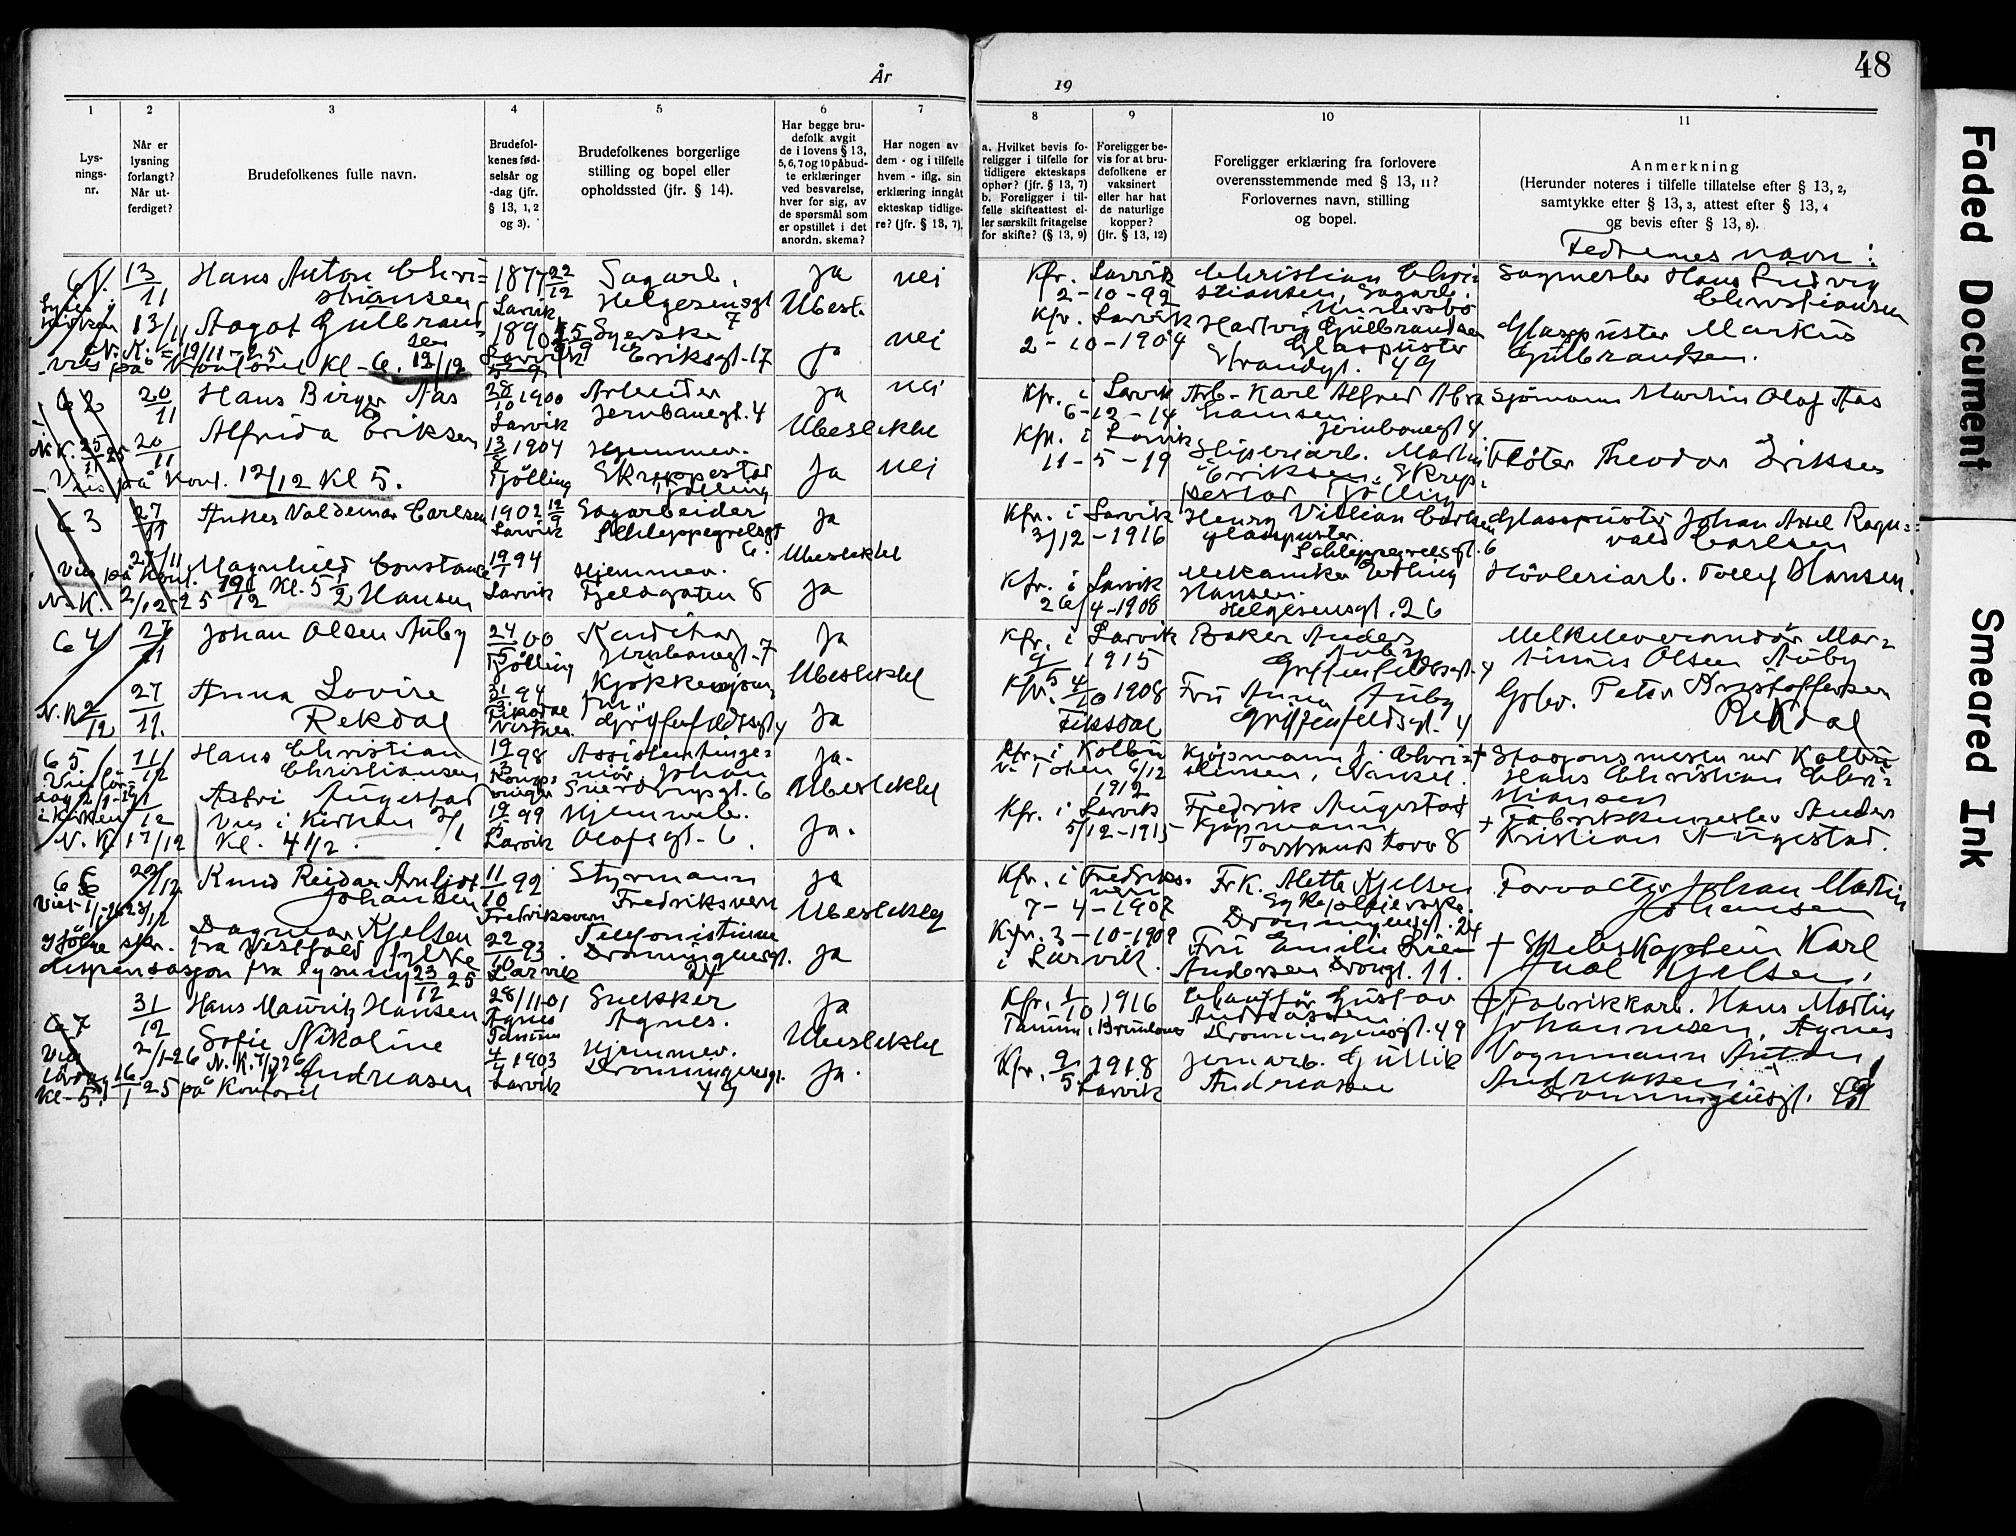 48
År
19
Faded Document
Smeared Ink
1
2
3
4
5
6
7
8
9
10
11
Lys-
nings-
nr.
Når er
lysning
forlangt?
Når ut-
ferdiget?
Brudefolkenes fulle navn.
Brudefol-
kenes fød-
selsår og
-dag (jfr.
§ 13, 1, 2
og 3).
Brudefolkenes borgerlige
stilling og bopel eller
opholdssted (jfr. § 14).
Har begge bru-
defolk avgit
de i lovens § 13,
5, 6, 7 og 10 påbud-
te erklæringer
ved besvarelse,
hver for sig, av
de spørsmål som
er opstillet i det
anordn. skema?
Har nogen av
dem - og i tilfelle
hvem - iflg. sin
erklæring inngåt
ekteskap tidlige-
re? (jfr. § 13, 7).
a. Hvilket bevis fo-
religger i tilfelle for
tidligere ekteskaps
ophør? (jfr. § 13, 7)
b. Foreligger i til-
felle skifteattest el-
ler særskilt fritagelse
for skifte? (§ 13, 9)
Foreligger be-
vis for at bru-
defolkene er
vaksinert
eller har hat
de naturlige
kopper?
(jfr. § 13, 12)
Foreligger erklæring fra forlovere
overensstemmende med § 13, 11?
Forlovernes navn, stilling
og bopel.
Anmerkning
(Herunder noteres i tilfelle tillatelse efter § 13, 2,
samtykke efter § 13, 3, attest efter § 13, 4
og bevis efter § 13, 8).
Fedrenes navn:
61. 13/11 Hans Anton Chri=
stiansen
1877 22/12 Larvik
Sagarb.
Helgesensgt 7
ja
Ubesl.
nei
Kfr. Larvik
2-10-92
Christian Chri=
stiansen, Sagarb.
Sagmester Hans Ludvig
Christiansen
13/11 Aagot Gulbrand
sen
1890
Larvik
Syerske
Eriksgt. 17
ja
nei
Kfr. Larvik
2-10-1904
Hartvig Gulbrandsen
Glaspuster
Strandgt. 49
Glaspuster Markus
Gulbrandsen.
N.K. 19/11-25
Vies på Kontoret Kl- 6. 12/12
62 20/11 Hans Birger Aas
28/10 1900
Larvik
Arbeider
Jernbanegt. 4
ja
Ubeslektet
nei
Kfr. i Larvik
6-12-14
Arb. Karl Alfred Abra
hamsen.
Jernbanegt 4.
Sjömann Martin Olaf Aas
N.K. 25/11 25 20/11 Alfrida Eriksen
13/8 1904
Tjölling
Hjemmev.
Skreppestad
Tjölling
ja
nei
Kfr. i Larvik
11-5-19
Sliperiarb. Martin
Eriksen. Skrep-
pestad Tjölling
Flöter Theodor Eriksen
Vies på Kont. 12/12 Kl 5.
63 27/11 Anker Valdemar Carlsen
1902 12/9
Larvik
Sagarbeider
Schleppegrellsgt
6.
ja
Ubeslektet
Kfr. i Larvik
3/12-1916
Henry Villian Carlsen
glasspuster.
Schleppegrellsgt. 6
Glasspuster Johan Axel Ragn=
vald Carlsen
27/11 Magnhild Constance
Hansen
19/1 94
Larvik
Hjemmev.
Fjeldgaten 8
ja
Kfr. i Larvik
26/4-1908
Mekaniker Erling
Hansen.
Helgesensgt. 26
Hövleriarb. Tollef Hansen.
Vies på Kont. 19/12 Kl. 5 1/2
N.K. 2/12-25
64 27/11 Johan Olsen Auby
24/5 00
Tjölling
Konditor
Jernbanegt. 7
ja
Ubeslektet
Kfr. i Larvik
9/5 1915
Baker Anders
Auby
Griffenfeldtsgt. 4
Melkeleverandör Mar=
tinius Olsen Auby
N.K 2/12 27/11. Anna Lovise
Rekdal
31/3 94
Kjökkensjom
fru
Griffenfeldtsgt 4
ja
Kfr. 4/10 1908
Fiksdal
Fru Anna Auby
Griffenfeldsgt. 4
Gbr. Peter Kristoffersen
Rekdal
65 11/12 Hans Christian
Christiansen
19/3 98
Kongs-
vinger
Assistentinge=
niör, Johan
Sverdrupsgt. 6
ja.
Ubeslektet
Kfr. i Kolbu
V. Toten 6/12
1912
Kjöpmann J. Chri=
stensen, Nanset.
† Stasjonsmester ved Kolbu
Hans Christian Chri=
stiansen
Astri Augestad
Vies i Kirken 2/1
Kl. 4 1/2.
19/1 99
Larvik
Hjemmev.
Olafsgt. 6.
ja.
Kfr. i Larvik
5/12-1915
Fredrik Augestad
Kjöpmann
Torstrand torv 8
† Fabrikkmester Anders
Kristian Augestad.
N.K. 17/12
66 22/12 Knud Reidar Arnljot
Johansen
11/10 92
Fredriksvern
Styrmann
Fredriksvern
ja
Ubeslektet
Kfr. i Fredriks-
vern
7-4-1907
Frk. Alette Kjelsen
Sykepleierske.
Dronningensgt. 24
Forvalter Johan Martin
Johansen
Dagmar Kjelsen
22/10 93
Larvik
Telefonistinne
Dronningensgt.
24
ja
Kfr. 3-10-1909
i Larvik.
Fru Emilie
Andersen Drongt. 11.
† Skibskaptein Karl
Juel Kjelsen.
Ifölge skr. fra Vestfold fylke
dispensasjon fra lysning 23/12 25
67 31/12 Hans Mauritz Hansen
28/11 01
Agnes
Tanum
Snekker
Agnes.
ja
Ubeslektet
Kfr. 1/10 1916
Tanum, Brunlanes
Chaufför Gustav
Andreassen
Dronningensgt. 49
† Fabrikkarb. Hans Martin
Johannesen, Agnes
2/1-26 N.K. 7/1 26
Sofie Nikoline
Andreasen
4/4 1903
Larvik
Hjemmev.
Dronningensgt.
49
ja.
Kfr. 9/5 1918
Larvik
Jernarb. Gullik
Andreasen
Vognmann Anton
Andreasen.
Dronningensgt. 49
Vies
lördag 16/1 25 på Kontoret
Kl- 5.